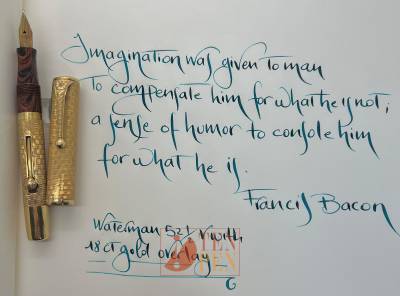 Imagination was given to man
to compensate him for what he is not;
a sense of humor to console him
for what he is.
Francis Bacon
Waterman 52½ V with
18 ct gold overlay
PEN